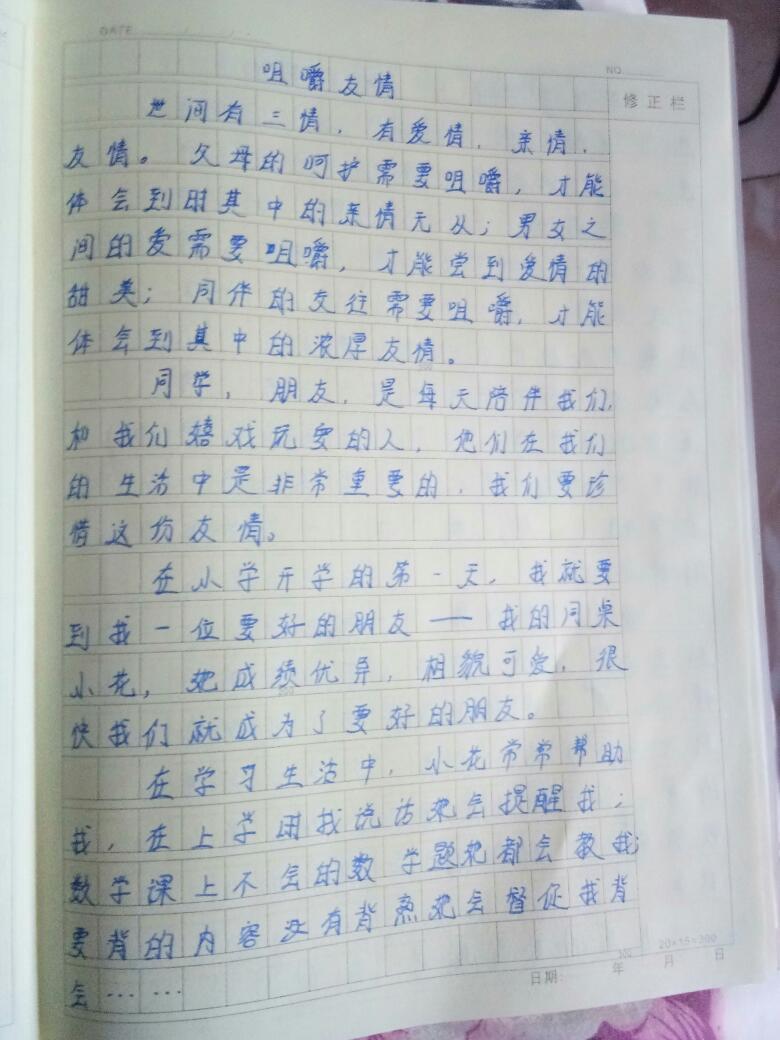 DATE
NO
修正栏
咀嚼友情
世间有三情，有爱情，亲情，
友情。父母的呵护需要咀嚼，才能
体会到时其中的亲情无从；男女之
间的爱需要咀嚼，才能尝到爱情的
甜美；同伴的交往需要咀嚼，才能
体会到其中的浓厚友情。
同学，朋友，是每天陪伴我们，
和我们嬉戏玩耍的人，他们在我们
的生活中是非常重要的，我们要珍
惜这份友情。
在小学开学的第一天，我就要
到我一位要好的朋友——我的同桌
小花，她成绩优异，相貌可爱，很
快我们就成为了要好的朋友。
在学习生活中，小花常常帮助
我，在上学时找说话她会提醒我；
数学课上不会的数学题她都会教我；
要背的内容没有背熟她会督促我背
会……
20×15=300
300
日期： 年 月 日